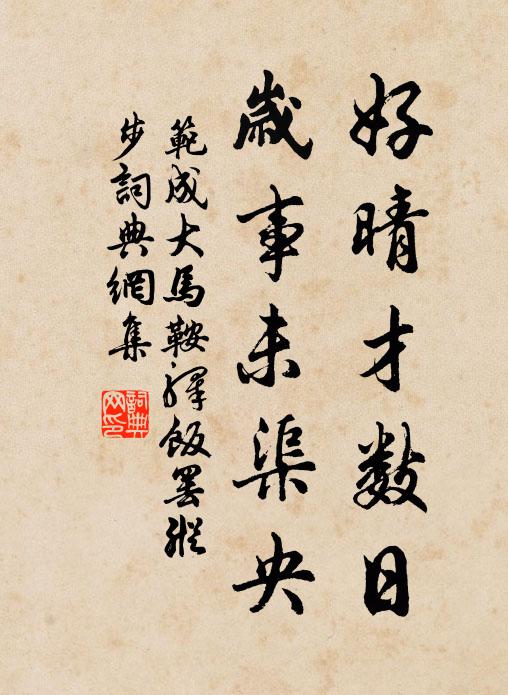 好晴才數日
歲事未渠央
範成大馬鞍驛飯罷縱
步詞典網集
詞典
网印